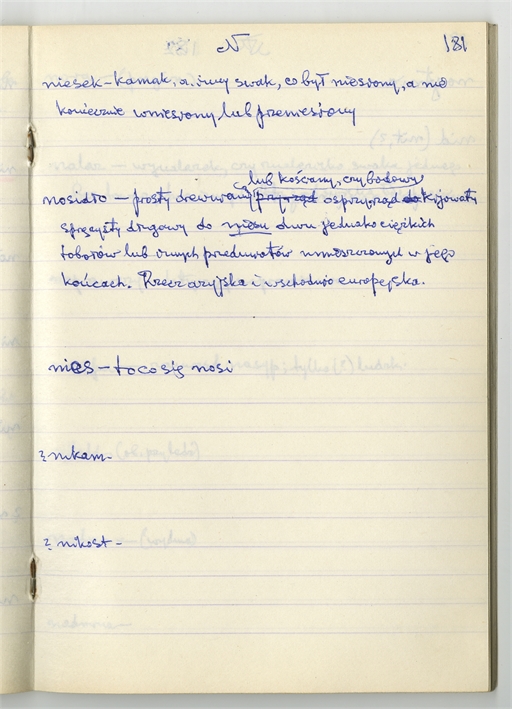 N 181
niesek – kamak, a. inny swak, co był niesiony, a nie
koniecznie wniesiony lub przeniesiony
lub kościany, czy bodowy
nosidło – prosty drewniany przyrząd osprzyrząd do kijowaty
sprężysty drągowy do niesu dwu jednako ciężkich
tobołów lub innych przedmiotów umieszczonych w jego
końcach. Rzecz azyjska i wschodnio europejska.
nies – to co się nosi
? nikam –
? nikost –